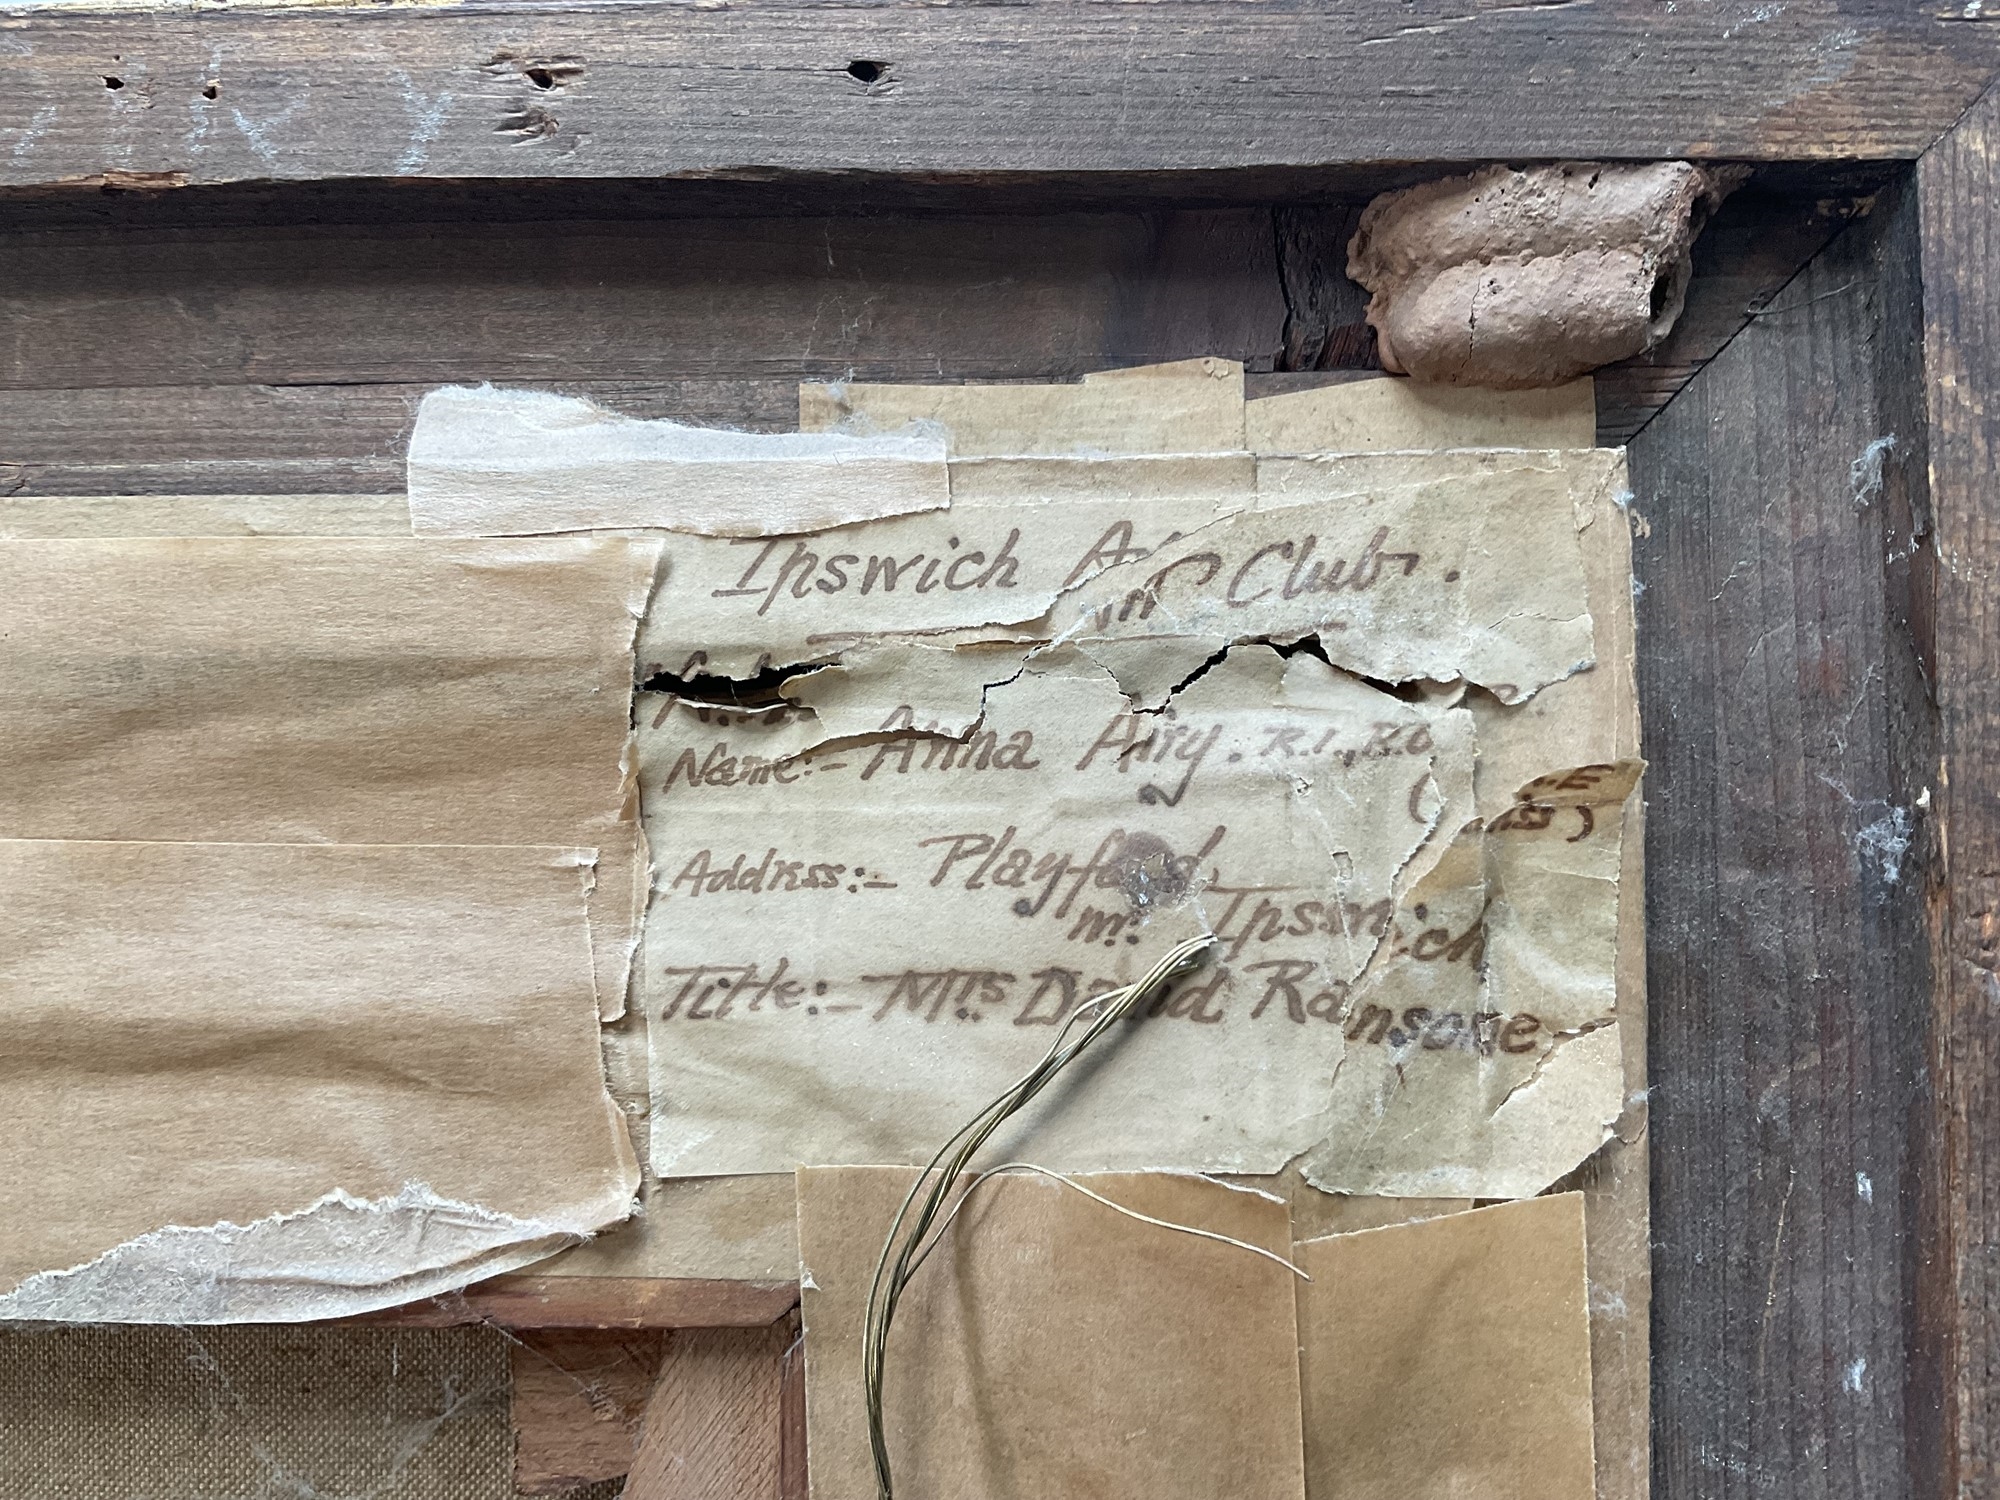 Ipswich Art Club.
Name:- Anna Airy. R.I., R.O.
Address:- Playford,
nr. Ipswich
Title:- Mrs David Ransome